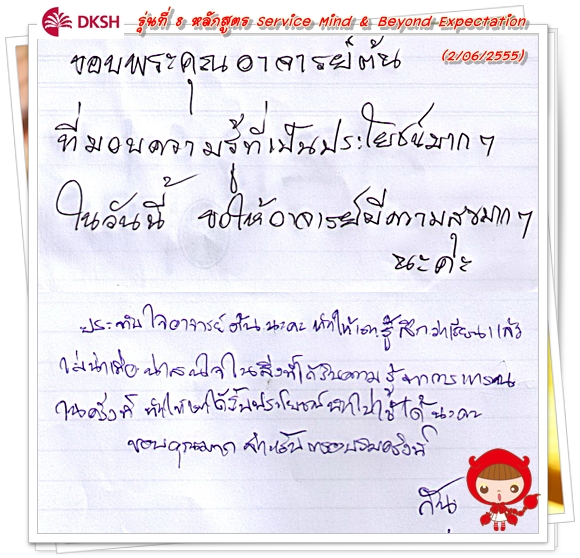 DKSH รุ่นที่ 8 หลักสูตร Service Mind & Beyond Expectation
(2/06/2555)
ขอบพระคุณอาจารย์ต้น
ที่มอบความรู้ที่เป็นประโยชน์มากๆ
ในวันนี้ ขอให้อาจารย์มีความสุขมากๆ
นะค่ะ
ประทับใจอาจารย์ต้นนะคะ ทำให้เรารู้สึกว่าเรียนแล้ว
ไม่น่าเบื่อ น่าสนใจในสิ่งที่ได้รับความรู้จากการ
ในครั้งนี้ ทำให้ได้รับประโยชน์นำไปใช้ได้นะคะ
ขอบคุณมาก สำหรับการอบรมครั้งนี้